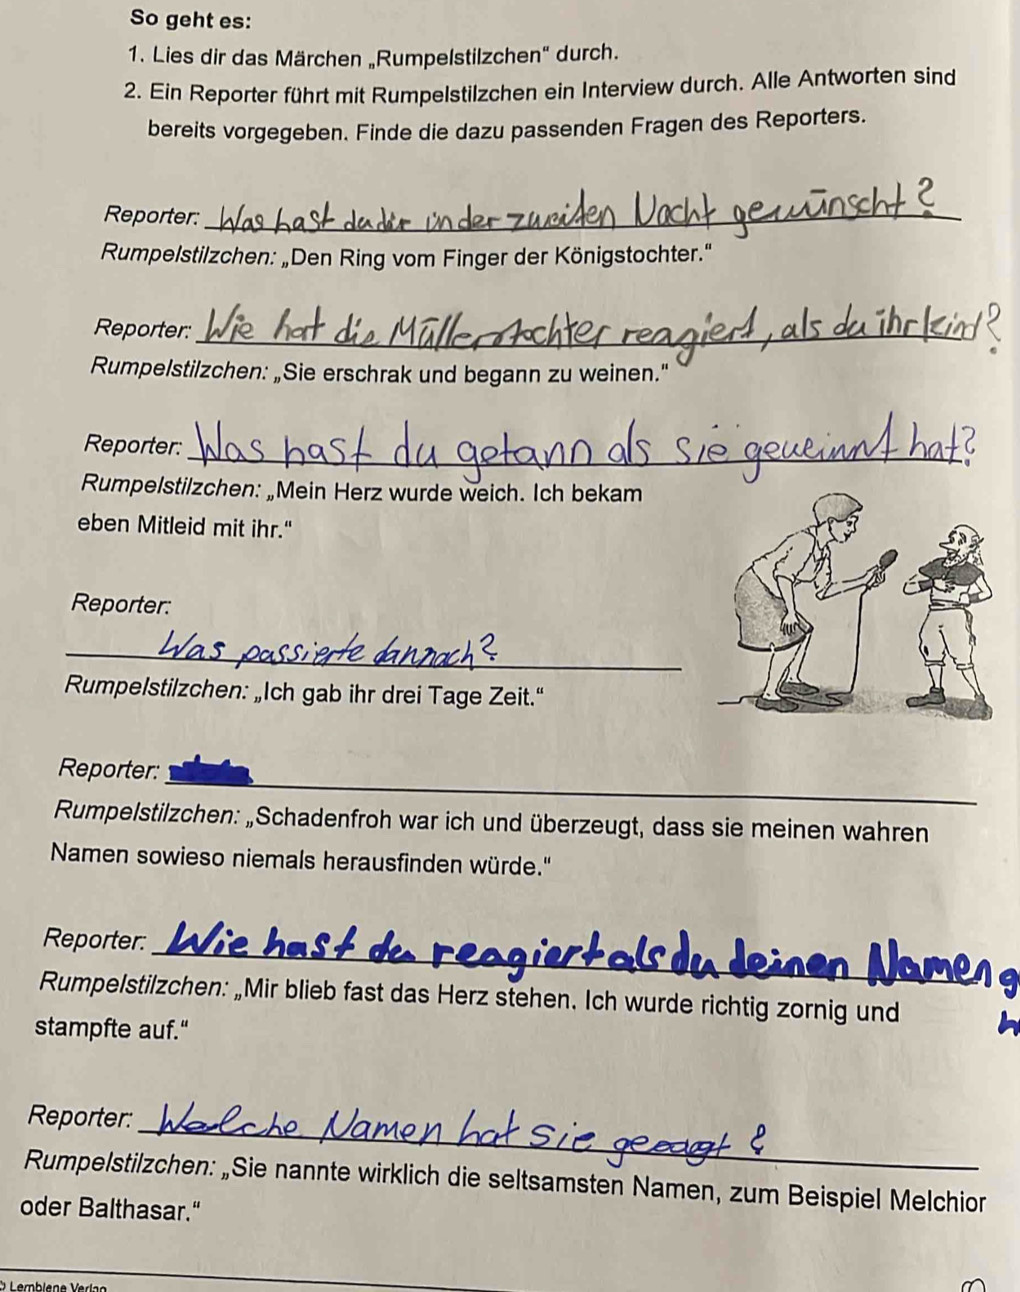 So geht es:
1. Lies dir das Märchen „Rumpelstilzchen“ durch.
2. Ein Reporter führt mit Rumpelstilzchen ein Interview durch. Alle Antworten sind
bereits vorgegeben. Finde die dazu passenden Fragen des Reporters.
Reporter: Was hast du dir in der zweiten Nacht gewünscht?
Rumpelstilzchen: „Den Ring vom Finger der Königstochter.“
Reporter: Wie hat die Müllerstochter reagiert, als du ihr kind?
Rumpelstilzchen: „Sie erschrak und begann zu weinen.“
Reporter: Was hast du getann als sie geweinnt hat?
Rumpelstilzchen: „Mein Herz wurde weich. Ich bekam
eben Mitleid mit ihr.“
Reporter:
Was passierte dannach?
Rumpelstilzchen: „Ich gab ihr drei Tage Zeit.“
Reporter:
Rumpelstilzchen: „Schadenfroh war ich und überzeugt, dass sie meinen wahren
Namen sowieso niemals herausfinden würde.“
Reporter: Wie hast du reagiert als du deinen Namen g
Rumpelstilzchen: „Mir blieb fast das Herz stehen. Ich wurde richtig zornig und
stampfte auf.“
Reporter: Welche Namen hat sie gesagt?
Rumpelstilzchen: „Sie nannte wirklich die seltsamsten Namen, zum Beispiel Melchior
oder Balthasar.“
Lernbiene Verlag